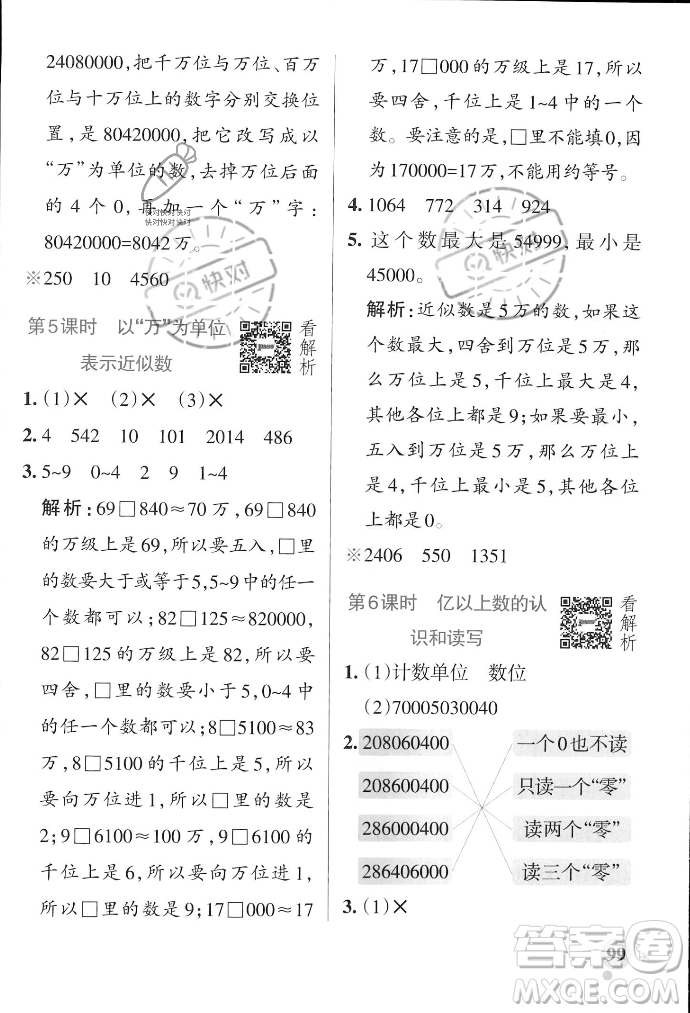 24080000,把千万位与万位、百万
位与十万位上的数字分别交换位
置,是80420000。把它改写成以
“万”为单位的数,去掉万位后面
的4个0,再加一个“万”字:
80420000=8042万。
※250 10 4560
第5课时 以“万”为单位
表示近似数
看解析
1.(1)× (2)× (3)×
2.4 542 10 101 2014 486
3.5~9 0~4 2 9 1~4
解析:69□840≈70万,69□840
的万级上是69,所以要五入,□里
的数要大于或等于5,5~9中任意一
个数都可以;82□125≈820000,
82□125的万级上是82,所以要
四舍,□里的数要小于5,0~4中
任意一个数都可以;8□5100≈83
万,8□5100的千位上是5,所以
要向万位进1,所以□里的数是
2;9□6100≈100万,9□6100的
千位上是6,所以要向万位进1,
所以□里的数是9;17□000≈17
万,17□000的万级上是17,所以
要四舍,千位上是1~4中的一个
数。要注意的是,□里不能填0,因
为170000=17万,不能用约等号。
4.1064 772 314 924
5.这个数最大是54999,最小是
45000。
解析:近似数是5万的数,如果这
个数最大,四舍到万位是5万,那
么万位上是5,千位上最大是4,
其他各位上都是9;如果这个数最小,
五入到万位是5万,那么万位上
是4,千位上最小是5,其他各位
上都是0。
※2406 550 1351
第6课时 亿以上数的认
识和读写
看解析
1.(1)计数单位 数位
(2)70005030040
2.208060400 一个0也不读
208600400 只读一个“零”
286000400 读两个“零”
286406000 读三个“零”
3.(1)×
99
快对
快对快对快对
快对快对快对
答案圈
MXQE.COM